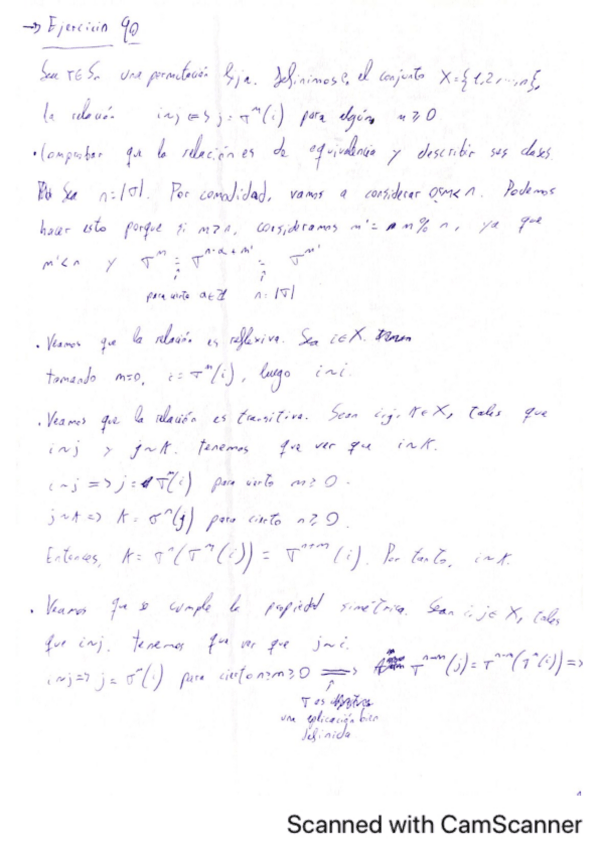 → Ejercicio 90
Sea σ∈Sn una permutación fija. Definimos en el conjunto X={1,2,...,n},
la relación i~j <=> j=σ^m(i) para algún m≥0
• Comprobar que la relación es de equivalencia y describir sus clases.
Sea n=|σ|. Por comodidad, vamos a considerar 0≤m<n. Podemos
hacer esto porque si m≥n, consideramos m'= m%n, ya que
m'<n y σ^m = σ^{n·a+m'} = σ^{m'}
para cierto a∈Z n=|σ|
• Veamos que la relación es reflexiva. Sea i∈X.
tomando m=0, i=σ^m(i), luego i~i.
• Veamos que la relación es transitiva. Sean i,j,k∈X, tales que
i~j y j~k. tenemos que ver que i~k.
i~j => j=σ^m(i) para cierto m≥0.
j~k => k=σ^n(j) para cierto n≥0.
Entonces, k=σ^n(σ^m(i))=σ^{n+m}(i). Por tanto, i~k.
• Veamos que se cumple la propiedad simétrica. Sean i,j∈X, tales
que i~j. tenemos que ver que j~i.
i~j => j=σ^m(i) para cierto n>m≥0 => σ^{n-m}(j)=σ^{n-m}(σ^m(i)) =>
σ es
una aplicación bien
definida
1
Scanned with CamScanner